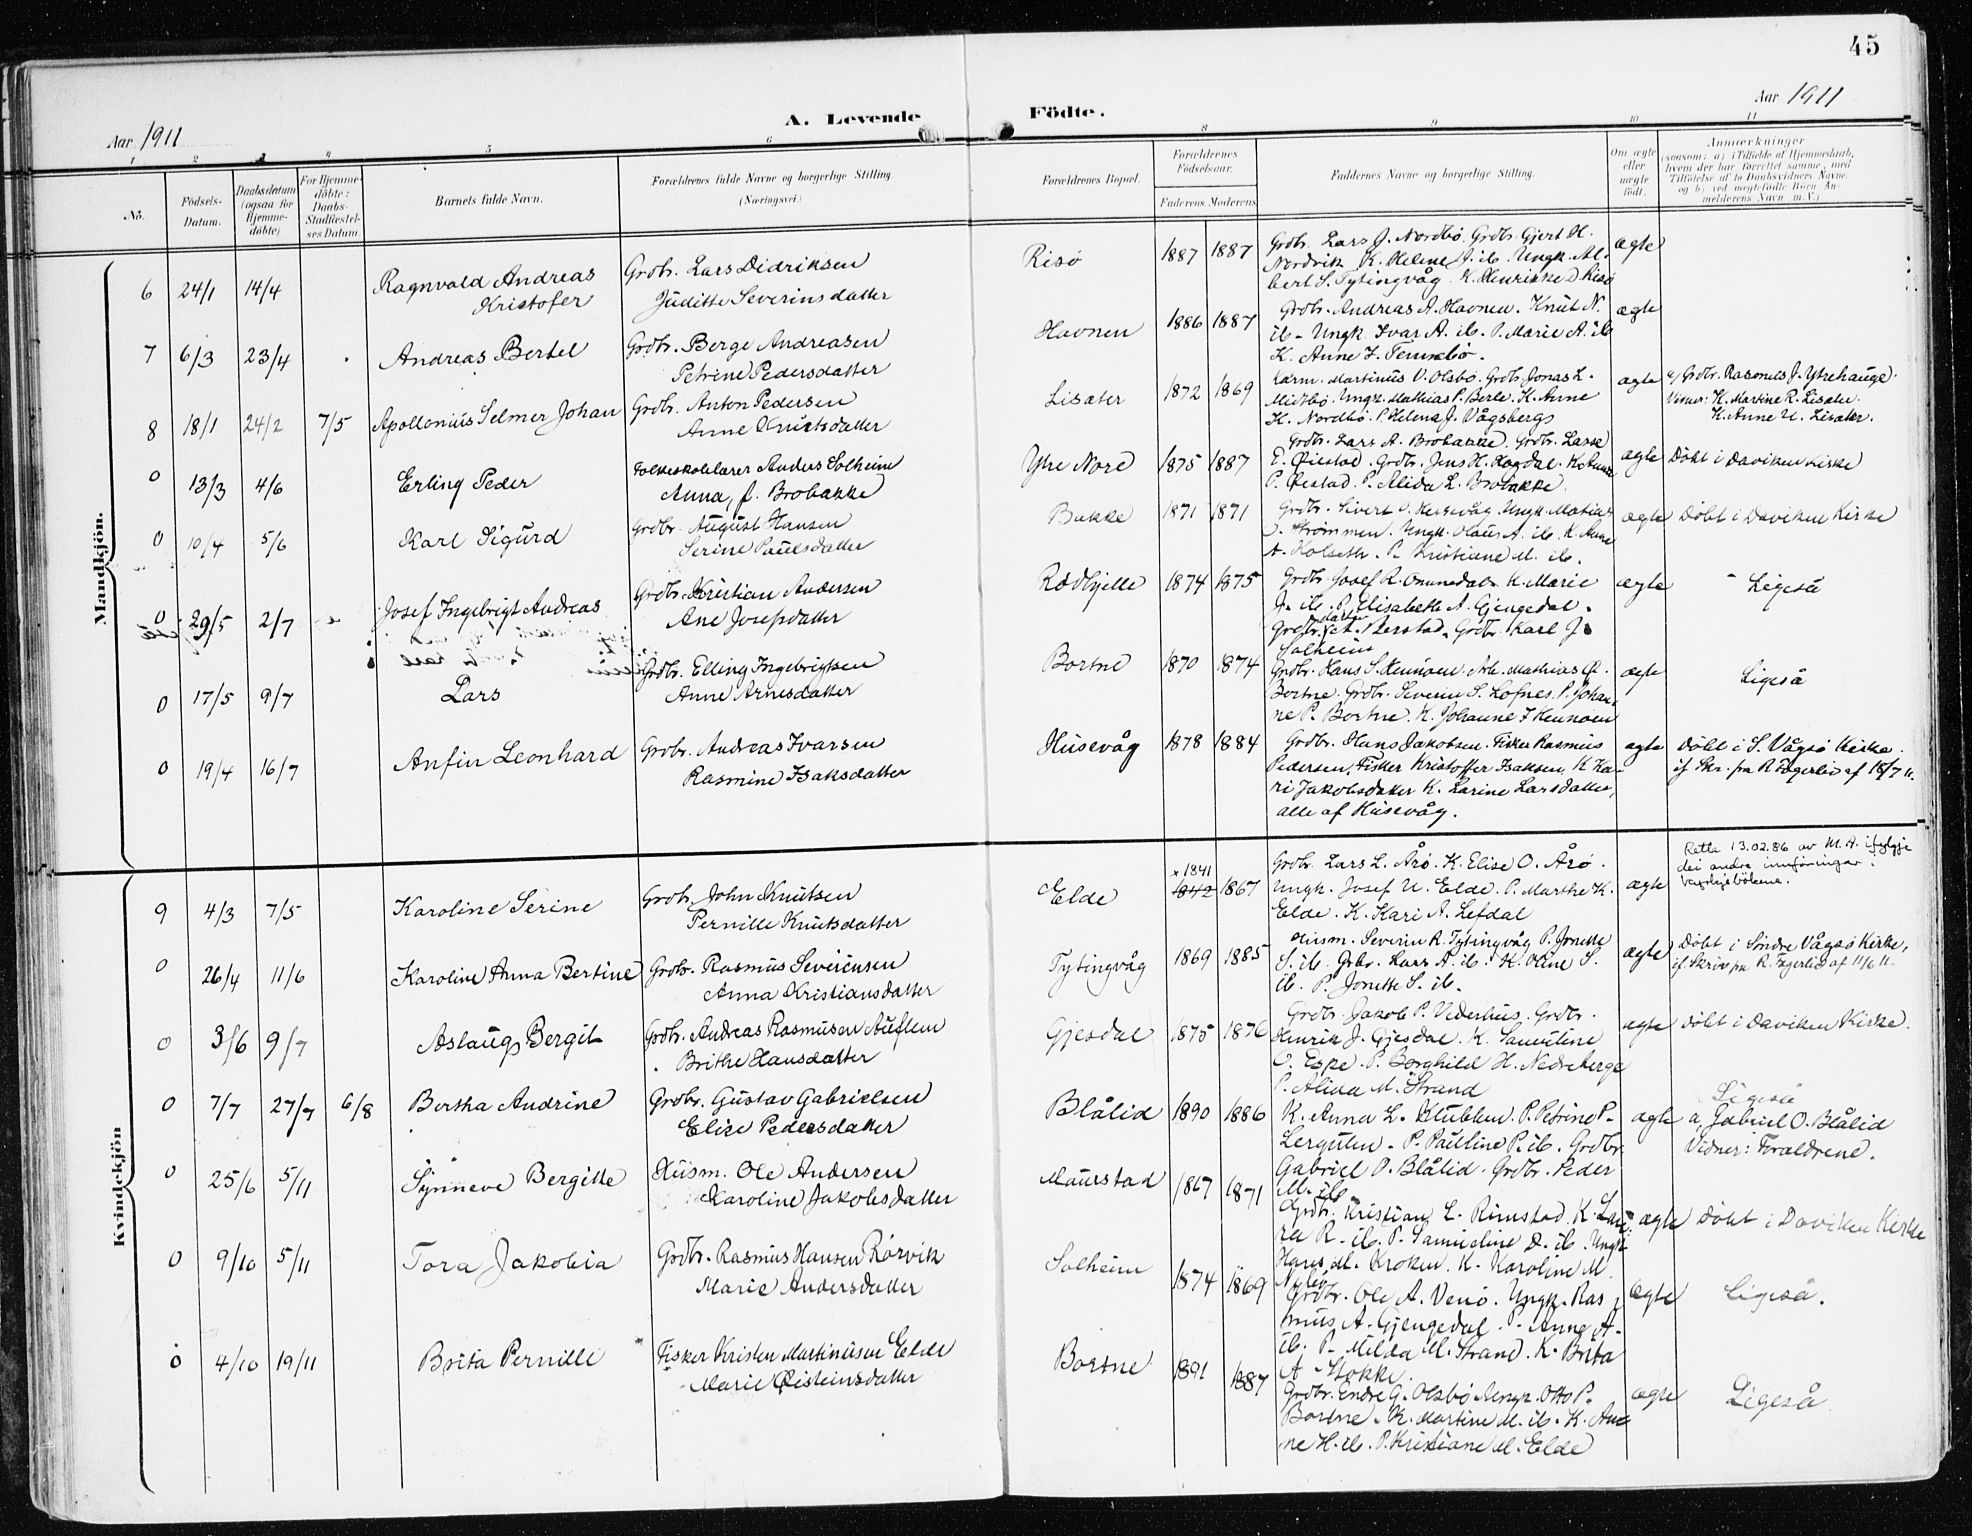 45
Aar 1911
A. Levende Födte.
Aar 1911
1 2 3 4 5 6 8 9 10 11
No.
Födsels-Datum.
Daabsdatum (ogsaa for Hjemmedöbte)
For Hjemmedöbte: Daabs-Stadfæstelses Datum.
Barnets fulde Navn.
Forældrenes fulde Navne og borgerlige Stilling. (Næringsvei.)
Forældrenes Bopæl.
Forældrenes Födselsaar.
Faderens. Moderens.
Faddernes Navne og borgerlige Stilling.
Om ægte eller uægte födt.
Anmærkninger
(saasom: a) i Tilfælde af Hjemmedaab, hvem der har forrettet samme, med Tilföielse af to Daabsvidners Navne, og b) ved uægtefödte Börn Anmelderens Navn m. V.)
Mandkjön.
6 24/1 14/4 Ragnvald Andreas
Kristofer
Grdbr. Lars Didriksen
Juditte Severinsdatter
Risö 1887 1887
Grdbr. Lars J. Nordbö. Grdbr. Gjert H.
Nordvik K. Helene J. ib. Ungk. Al-
bert S. Tytingvåg. K. Henrikke D. Risö
ægte
7 6/3 23/4 Andreas Bertel
Grdbr. Berge Andreasen
Petrine Pedersdatter
Havnen 1886 1887
Grdbr. Andreas A. Havnen. Knut N.
ib. Ungk. Ivar A. ib. P. Marie A. ib
K. Anne I. Tennebö.
ægte
8 18/1 24/2 7/5 Apollonius Selmer Johan
Grdbr. Anton Pedersen
Anne Knutsdatter
Lisæter 1872 1869
Kårm. Martinus V. Olsbö. Grdbr. Jonas L.
Midtbö. Ungk. Mathias P. Berle. K. Anne
H. Nordbö. P. Helena J. Vågsberg
ægte
a/ Grdbr. Rasmus J. Ytrehauge.
Vidner: K. Martine R. Lisæter.
K. Anne U. Lisæter.
0 13/3 4/6 Erling Peder
Folkeskolelærer Anders Solheim
Anna, f. Brobakke
Ytre Nore 1875 1887
Grdbr. Lars A. Brobakke. Grdbr. Lasse
E. Øiestad. Grdbr. Jens H.
P. Øiestad. P. Alida L. Brobakke.
ægte Döbt i Daviken Kirke
0 10/4 5/6 Karl Sigurd
Grdbr. August Hansen
Serine Paulsdatter
Bakke 1871 1871
Grdbr. Sivert Husevåg. Ungk. Matias
Strömmen. Ungk. Olaus A. ib. K. Anne
A. Kolseth. P. Kristiane M. ib.
ægte Döbt i Daviken Kirke
0 29/5 2/7 Josef Ingebrigt Andreas
Grdbr. Kristian Andersen
Ane Josefsdatter
Rödhjelle 1874 1875
Grdbr. Josef R. Ommedal. K. Marie
J. ib. P. Elisabeth A. Gjengedal.
Grdbr. A. Nerstad. Grdbr. Karl J.
Solheim
ægte Ligeså
0 17/5 9/7 Lars
Grdbr. Elling Ingebrigtsen
Anne Arnesdatter
Bortne 1870 1874
Grdbr. Hans S. Hennöen. Arb. Mathias O.
Bortne. Grdbr. Severin S. Lofnes. P. Johan-
ne P. Bortne. K. Johanne I Hennöen
ægte Ligeså
0 19/4 16/7 Anfin Leonhard
Grdbr. Andreas Ivarsen
Rasmine Isaksdatter
Husevåg 1878 1884
Grdbr. Hans Jakobsen. Fisker Rasmus
Pedersen, Fisker Kristoffer Isaksen. K. Ka-
ri Jakobsdatter K. Larine Larsdatter,
alle af Husevåg.
ægte Döbt i S. Vågsö Kirke.
if Skr. fra R. Fagerlid af 18/7 11.
Kvindekjön
9 4/3 7/5 Karoline Serine
Grdbr. John Knutsen
Pernille Knutsdatter
Elde x 1841 1842 1867
Grdbr. Lars L. Årö. K. Elise O. Årö.
Ungk. Josef N. Elde. P. Marthe K.
Elde. K. Kari A. Lefdal
ægte
Retta 13.02.86 av M.A. ifylgje
dei andre innføringar i
kyrkjebökene.
0 26/4 11/6 Karoline Anna Bertine
Grdbr. Rasmus Severinsen
Anna Kristiansdatter
Tytingvåg 1869 1885
Husm. Severin R. Tytingvåg P. Jonette
S. ib. Grbr. Lars A. ib. K. Oline S.
ib. P. Jonette S. ib.
ægte Döbt i Söndre Vågsö Kirke,
if Skriv fra R. Fagerlid af 11/6 11.
0 3/6 9/7 Aslaug Bergit
Grdbr. Andreas Rasmusen Auflem
Brithe Hansdatter
Gjesdal 1875 1876
Grdbr. Jakob P. Vederhus. Grdbr.
Henrik J. Gjesdal. K. Samuline
O. Espe. P. Borghild H. Nedreberge
P. Alida M. Strand
ægte Döbt i Daviken Kirke.
0 7/7 27/7 6/8 Bertha Andrine
Grdbr. Gustav Gabrielsen
Elise Pedersdatter
Blålid 1890 1886
K. Anna L. Klubben. P. Petrine P.
Lergulen. P. Pauline P. ib. Grdbr
Gabriel O. Blålid. Grdbr. Peder
M. ib.
ægte
Ligeså
a, Gabriel O. Blålid
Vidner: Forældrene.
0 25/6 5/11 Synneve Bergitte
Husm. Ole Andersen
Karoline Jakobsdatter
Maurstad 1867 1871
Grdbr. Kristian L. Rimstad. K. Lau-
ra R. ib. P. Samueline D. ib. Ungk
Hans M. Kroken. K. Karoline M.
Nybö
ægte Döbt i Daviken Kirke
0 9/10 5/11 Tora Jakobia
Grdbr. Rasmus Hansen Rörvik
Marie Andersdatter
Solheim 1874 1869
Grdbr. Ole A. Venö. Ungk. Ras-
mus A. Gjengedal. P. Anne A.
ib. P. Milda M. Strand. K. Brita
A. Hokke.
ægte Ligeså.
0 4/10 19/11 Brita Pernille
Fisker Kristen Martinusen Elde
Marie Øisteinsdatter
Bortne 1891 1887
Grdbr. Endre G. Olsbö. Ungk. Otto P.
Bortne. K. Martine M. ib. K. An-
ne H. ib. P. Kristiane M. Elde
ægte Ligeså